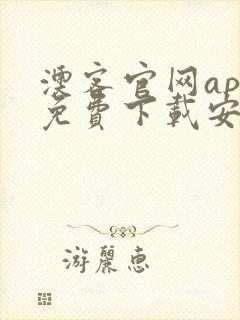 澳客官网ap
免費下載安
游麗惠